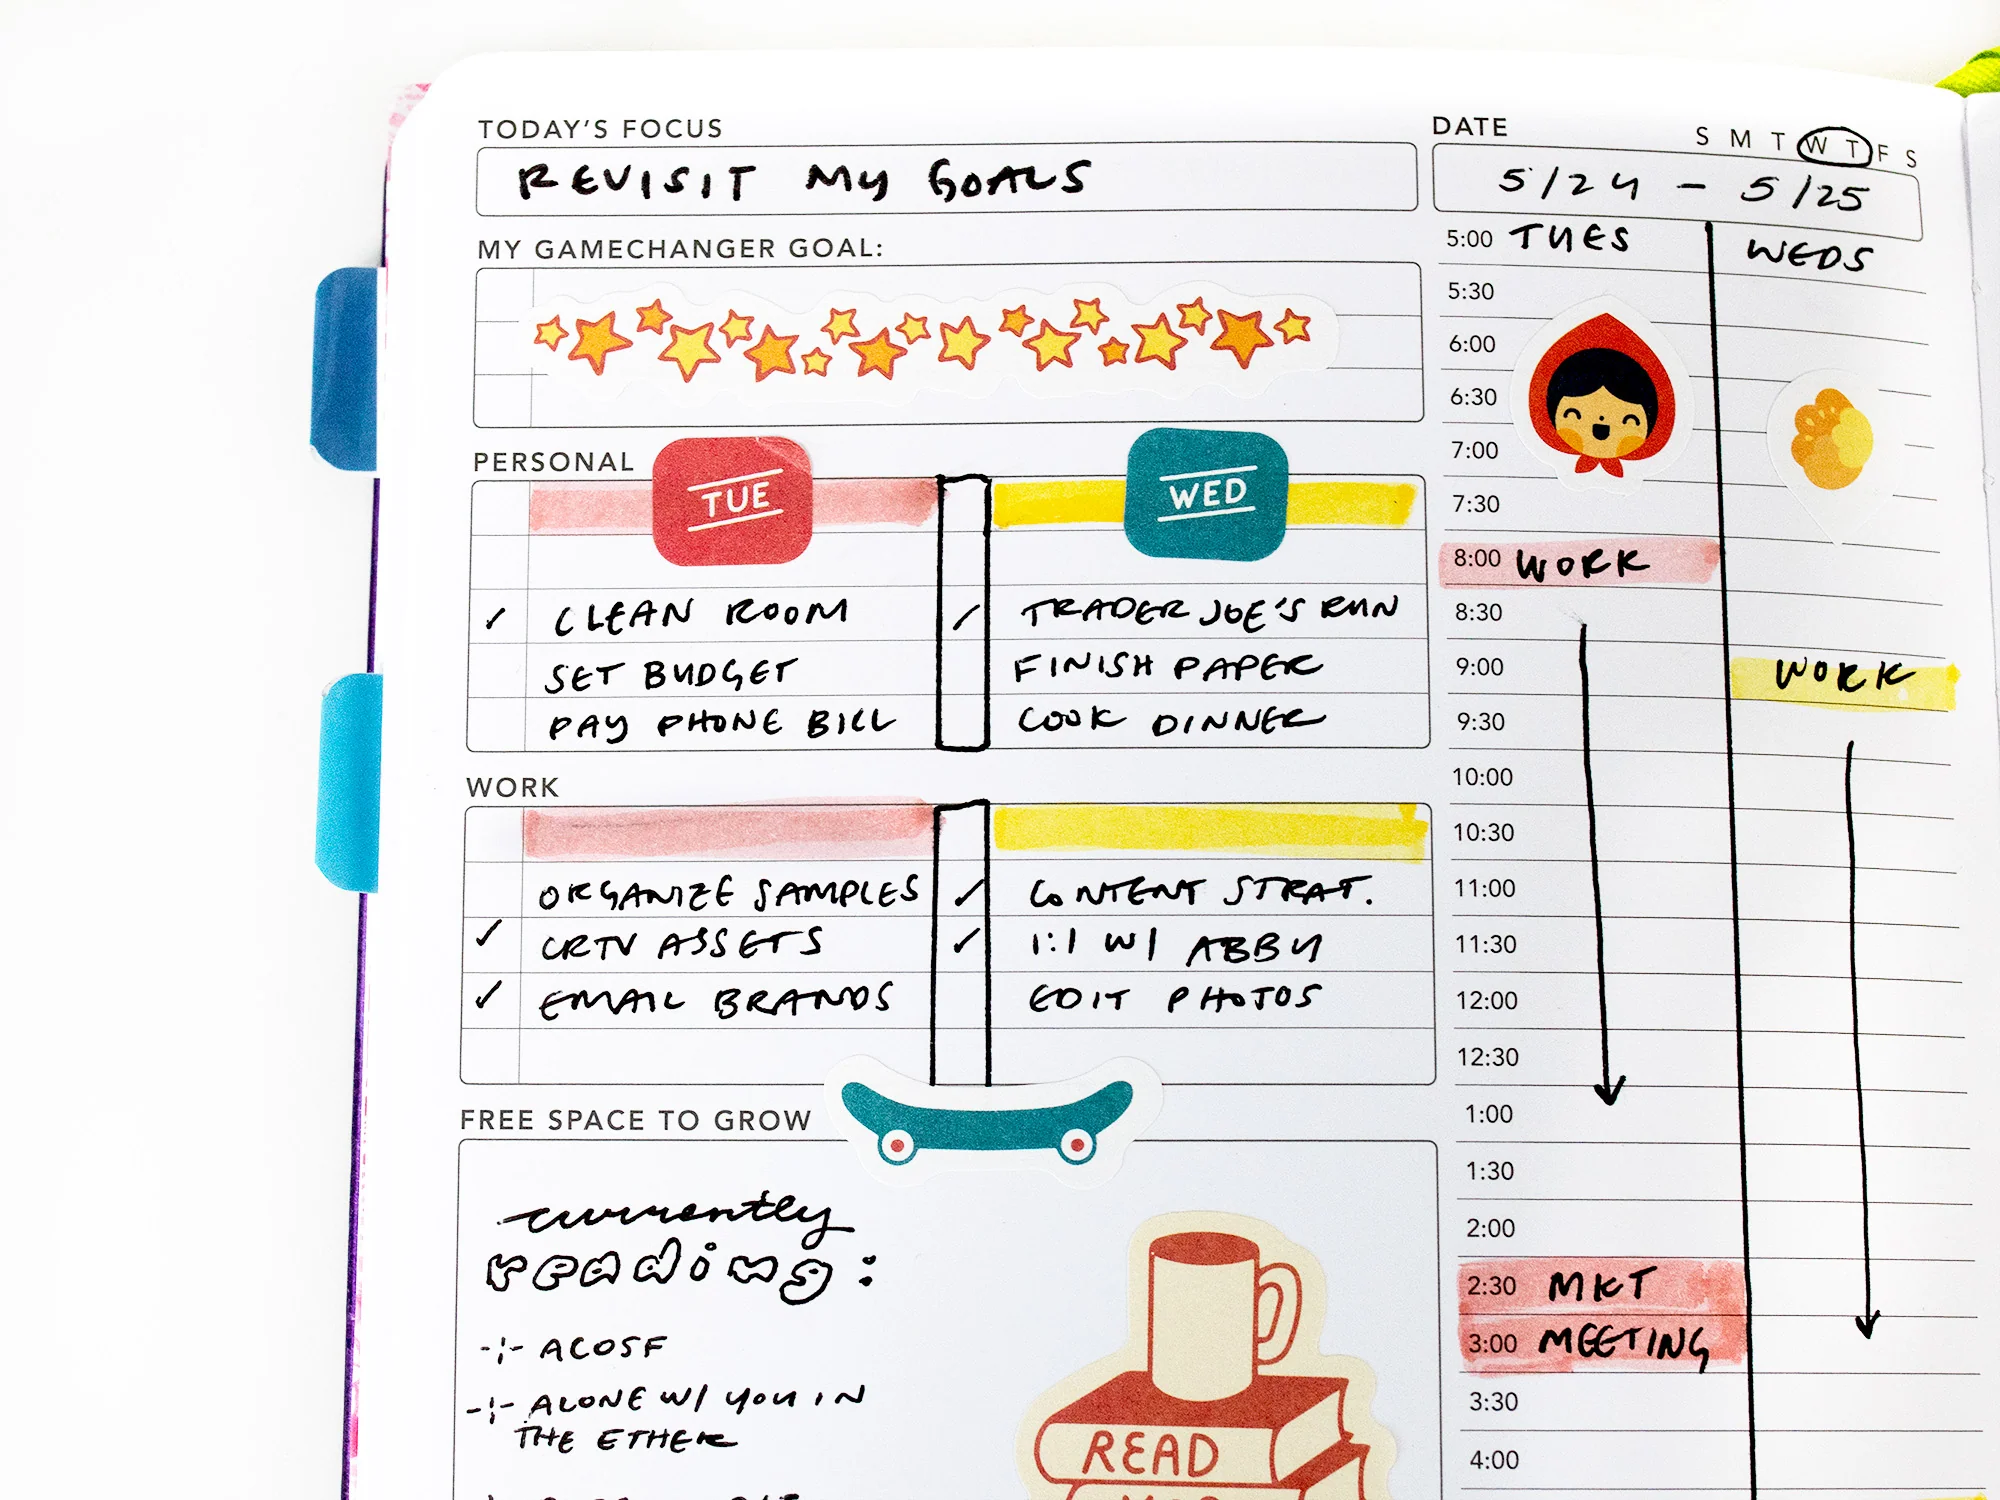 TODAY'S FOCUS
REVISIT MY GOALS
DATE
S M T W T F S
5/24 - 5/25
MY GAMECHANGER GOAL:
PERSONAL
TUE
WED
✓ CLEAN ROOM
✓ TRADER JOE'S RUN
SET BUDGET
FINISH PAPER
PAY PHONE BILL
COOK DINNER
WORK
ORGANIZE SAMPLES
✓ CONTENT STRAT.
✓ CRTV ASSETS
✓ 1:1 W/ ABBY
✓ EMAIL BRANDS
EDIT PHOTOS
FREE SPACE TO GROW
currently
reading:
-¦- ACOSF
-¦- ALONE W/ YOU IN
THE ETHER
READ
5:00 TUES
WEDS
5:30
6:00
6:30
7:00
7:30
8:00 WORK
8:30
9:00 WORK
9:30
10:00
10:30
11:00
11:30
12:00
12:30
1:00
1:30
2:00
2:30 MKT
3:00 MEETING
3:30
4:00